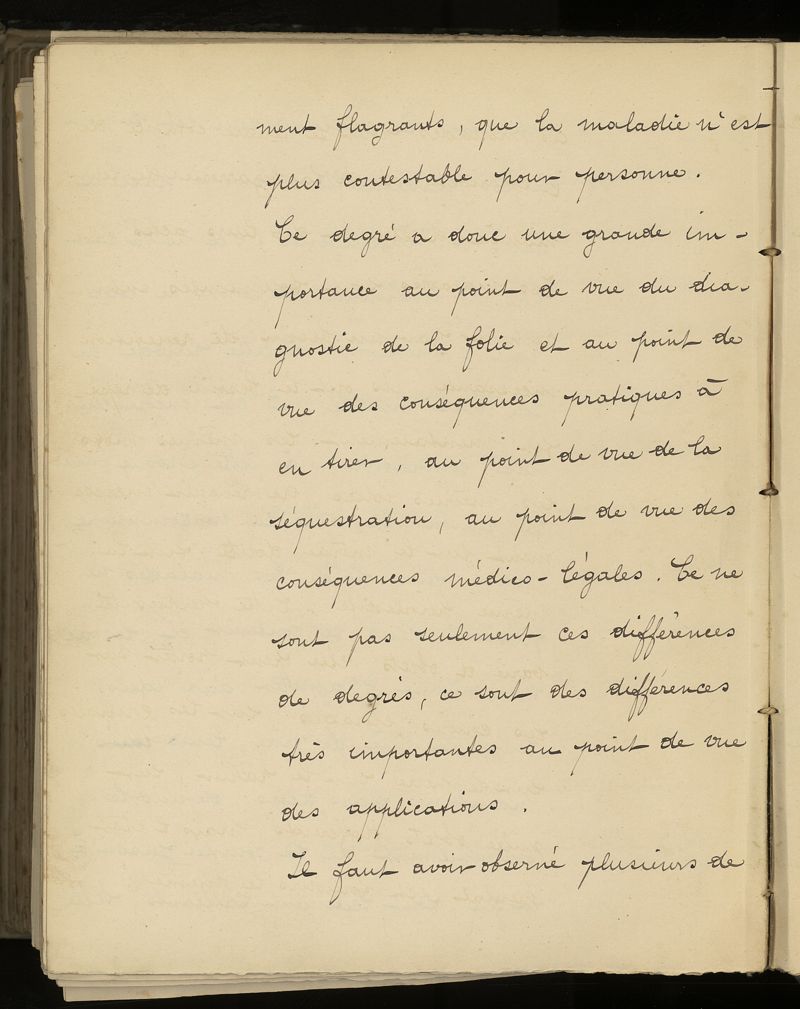 ment flagrants, que la maladie n'est
plus contestable pour personne.
Ce degré a donc une grande im-
portance au point de vue du dia-
gnostic de la folie et au point de
vue des conséquences pratiques à
en tirer, au point de vue de la
séquestration, au point de vue des
conséquences médico-légales. Ce ne
sont pas seulement ces différences
de degrés, ce sont des différences
très importantes au point de vue
des applications.
Il faut avoir observé plusieurs de